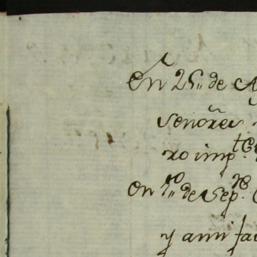 En 25,, de A
Señores
xo imp.te
En 1o,, de Sep.re
y ann fa